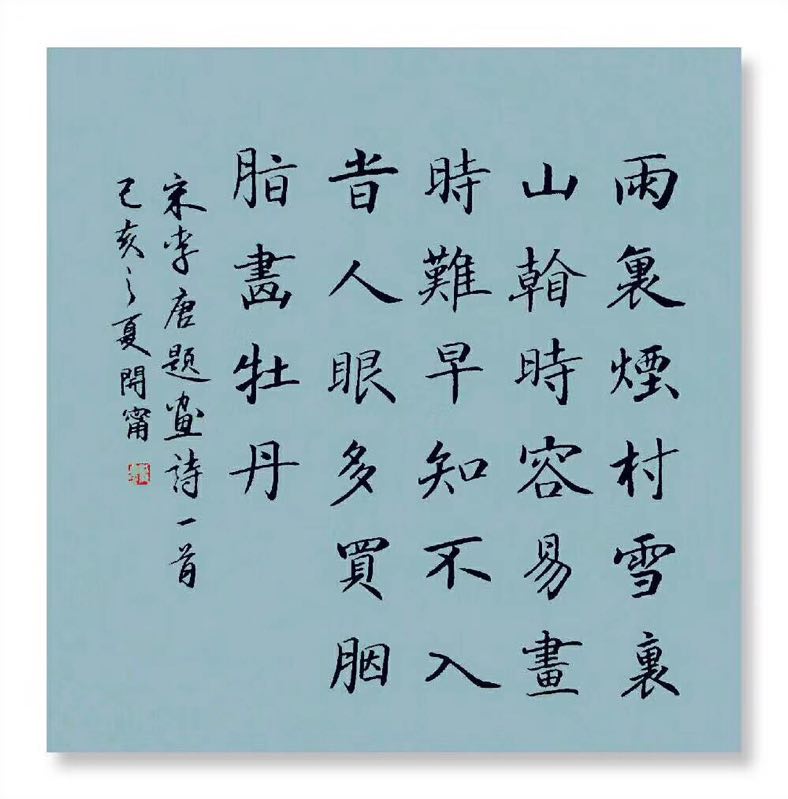 雨裏煙村雪裏
山時容易畫
時難早知不入
旹人眼多買胭
脂畫牡丹
宋李唐題畫詩一首
己亥之夏開甯